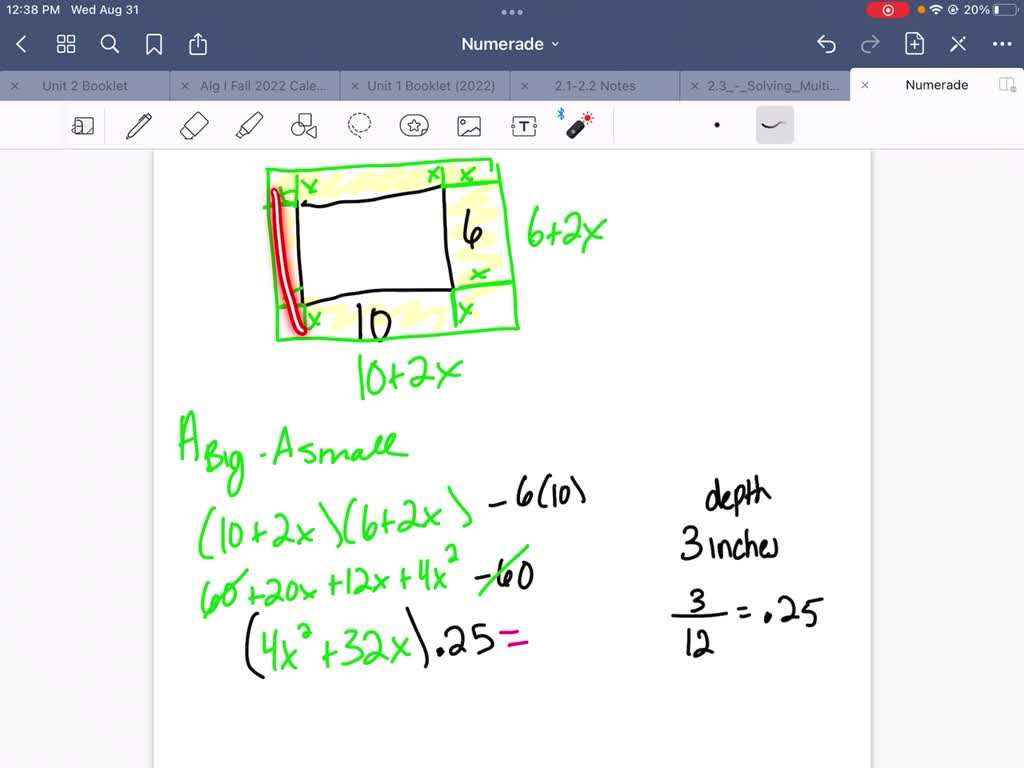 12:38 PM Wed Aug 31
20%
Numerade
Unit 2 Booklet
Alg I Fall 2022 Cale...
Unit 1 Booklet (2022)
2.1-2.2 Notes
2.3_-_Solving_Multi...
Numerade
T
x x x
6
6+2x
x
x 10 x
10+2x
A Big - A small
(10+2x)(6+2x) -6(10)
60+20x+12x+4x² -60
(4x²+32x).25=
depth
3 inches
3/12 = .25